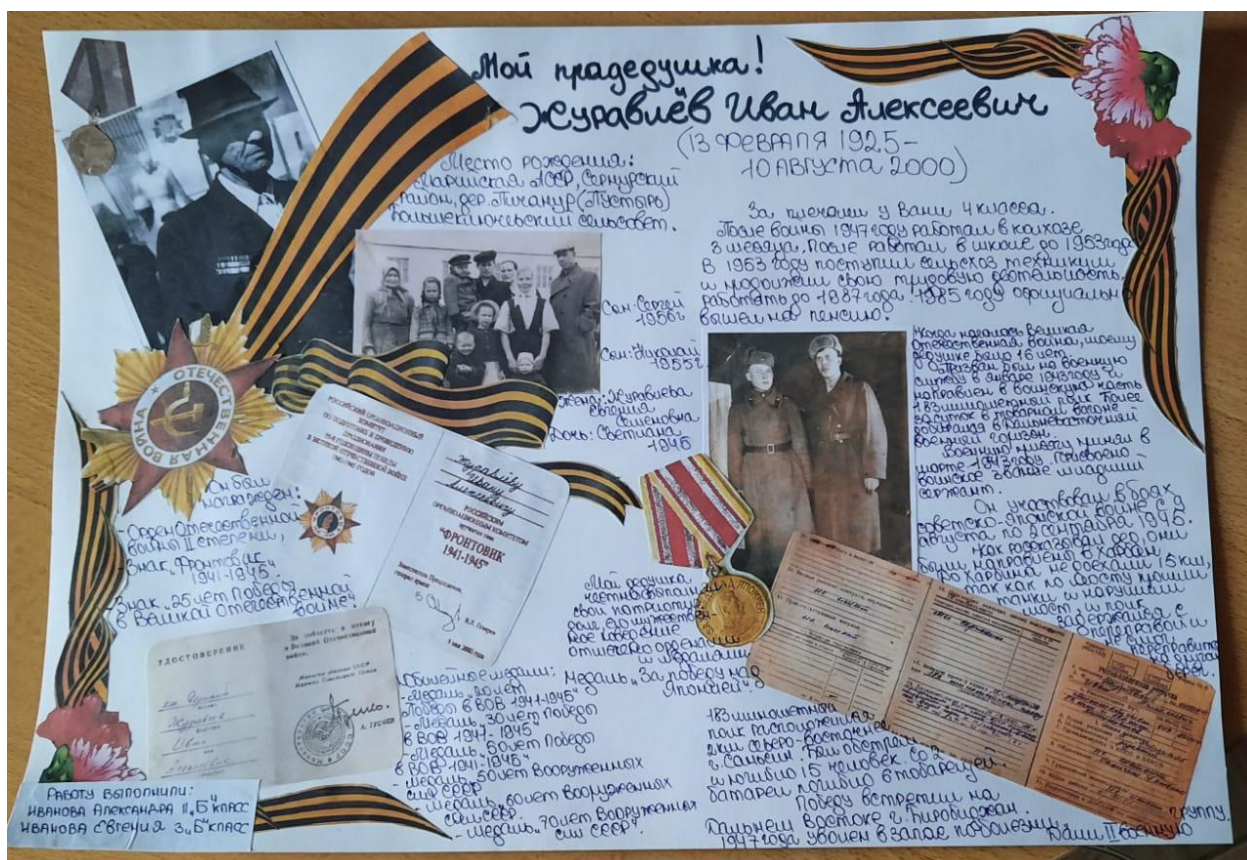 Мой прадедушка!
Журавлёв Иван Алексеевич
(13 ФЕВРАЛЯ 1925-
10 АВГУСТА 2000)
Место рождения:
Марийская АССР, Сернурский
район, дер. Пичанур (Пустырь)
Большеключевский сельсовет.
За плечами у Вани 4 класса.
После войны 1947 году работал в колхозе
3 месяца. После работал в школе до 1953 года
В 1953 году поступил сельхоз техникум
и продолжил свою трудовую деятельность,
работать до 1987 года! 1985 году официально
вышел на пенсию!
Сын: Сергей
1956г
Сын: Николай
1955г
Жена: Журавлева
Евгения
Семеновна
Дочь: Светлана
1945
Когда началась Великая
Отечественная война, моему
дедушке было 16 лет.
Призван был на военную
службу в январе 1943 году и
направлен в воинскую часть
183 миномётный полк. Более
суток в товарном вагоне
добирался в Дальневосточный
военный
Военную присягу принял в
марте 1943 году. Присвоено
воинское звание младший
сержант.
Он участвовал в боях
советско-японской войне с 9
августа по 2 сентября 1945.
Как рассказывал дед, они
были направлены в Харбин
до Харбина не доехали 15 км,
так как по мосту прошли
танки и нарушили
мост, и полк
задержался с
переправой и
переправить
на другой
берег.
ОТЕЧЕСТВЕННАЯ ВОЙНА
Он был
награжден:
- Орден Отечественной
войны II степени,
- Знак "Фронтовик
1941-1945"
- Знак "25 лет Победы
в Великой Отечественной
войне"
РОССИЙСКИЙ ОРГАНИЗАЦИОННЫЙ
КОМИТЕТ
ПО ПОДГОТОВКЕ И ПРОВЕДЕНИЮ
ПРАЗДНОВАНИЯ
ПОБЕДЫ
В ВЕЛИКОЙ ОТЕЧЕСТВЕННОЙ ВОЙНЕ
1941-1945 ГОДОВ
Журавлёву
Ивану
Алексеевичу
РОССИЙСКИМ
ОРГАНИЗАЦИОННЫМ КОМИТЕТОМ
вручается знак
"ФРОНТОВИК
1941-1945"
Мой дедушка
честно выполнил
свой патриотич.
долг. Его мужествен-
ное поведение
отмечено орденами
и медалями
Медаль "За победу над
Японией".
УДОСТОВЕРЕНИЕ
Журавлев
Иван
За доблесть и отвагу
в Великой Отечественной
войне
Юбилейные медали:
- Медаль "20 лет
Победы в ВОВ 1941-1945"
- Медаль "30 лет Победы
в ВОВ 1941-1945
- Медаль "50 лет Победы
в ВОВ 1941-1945"
- медаль "50 лет Вооруженных
сил СССР
- медаль "60 лет Вооруженных
сил СССР.
- медаль "70 лет Вооруженных
сил СССР.
183 миномётный
полк расположился
2 км северо-восточнее
г. Саньсин. Был обстрел
и погибло 15 человек. Со 2й
батареи погибло 6 товарищей.
Победу встретили на
Дальнем Востоке г. Биробиджан.
1947 года уволен в запас по болезни. Дали II военную группу.
РАБОТУ ВЫПОЛНИЛИ:
ИВАНОВА АЛЕКСАНДРА 11 "Б" КЛАСС
ИВАНОВА ЕВГЕНИЯ 3 "Б" КЛАСС